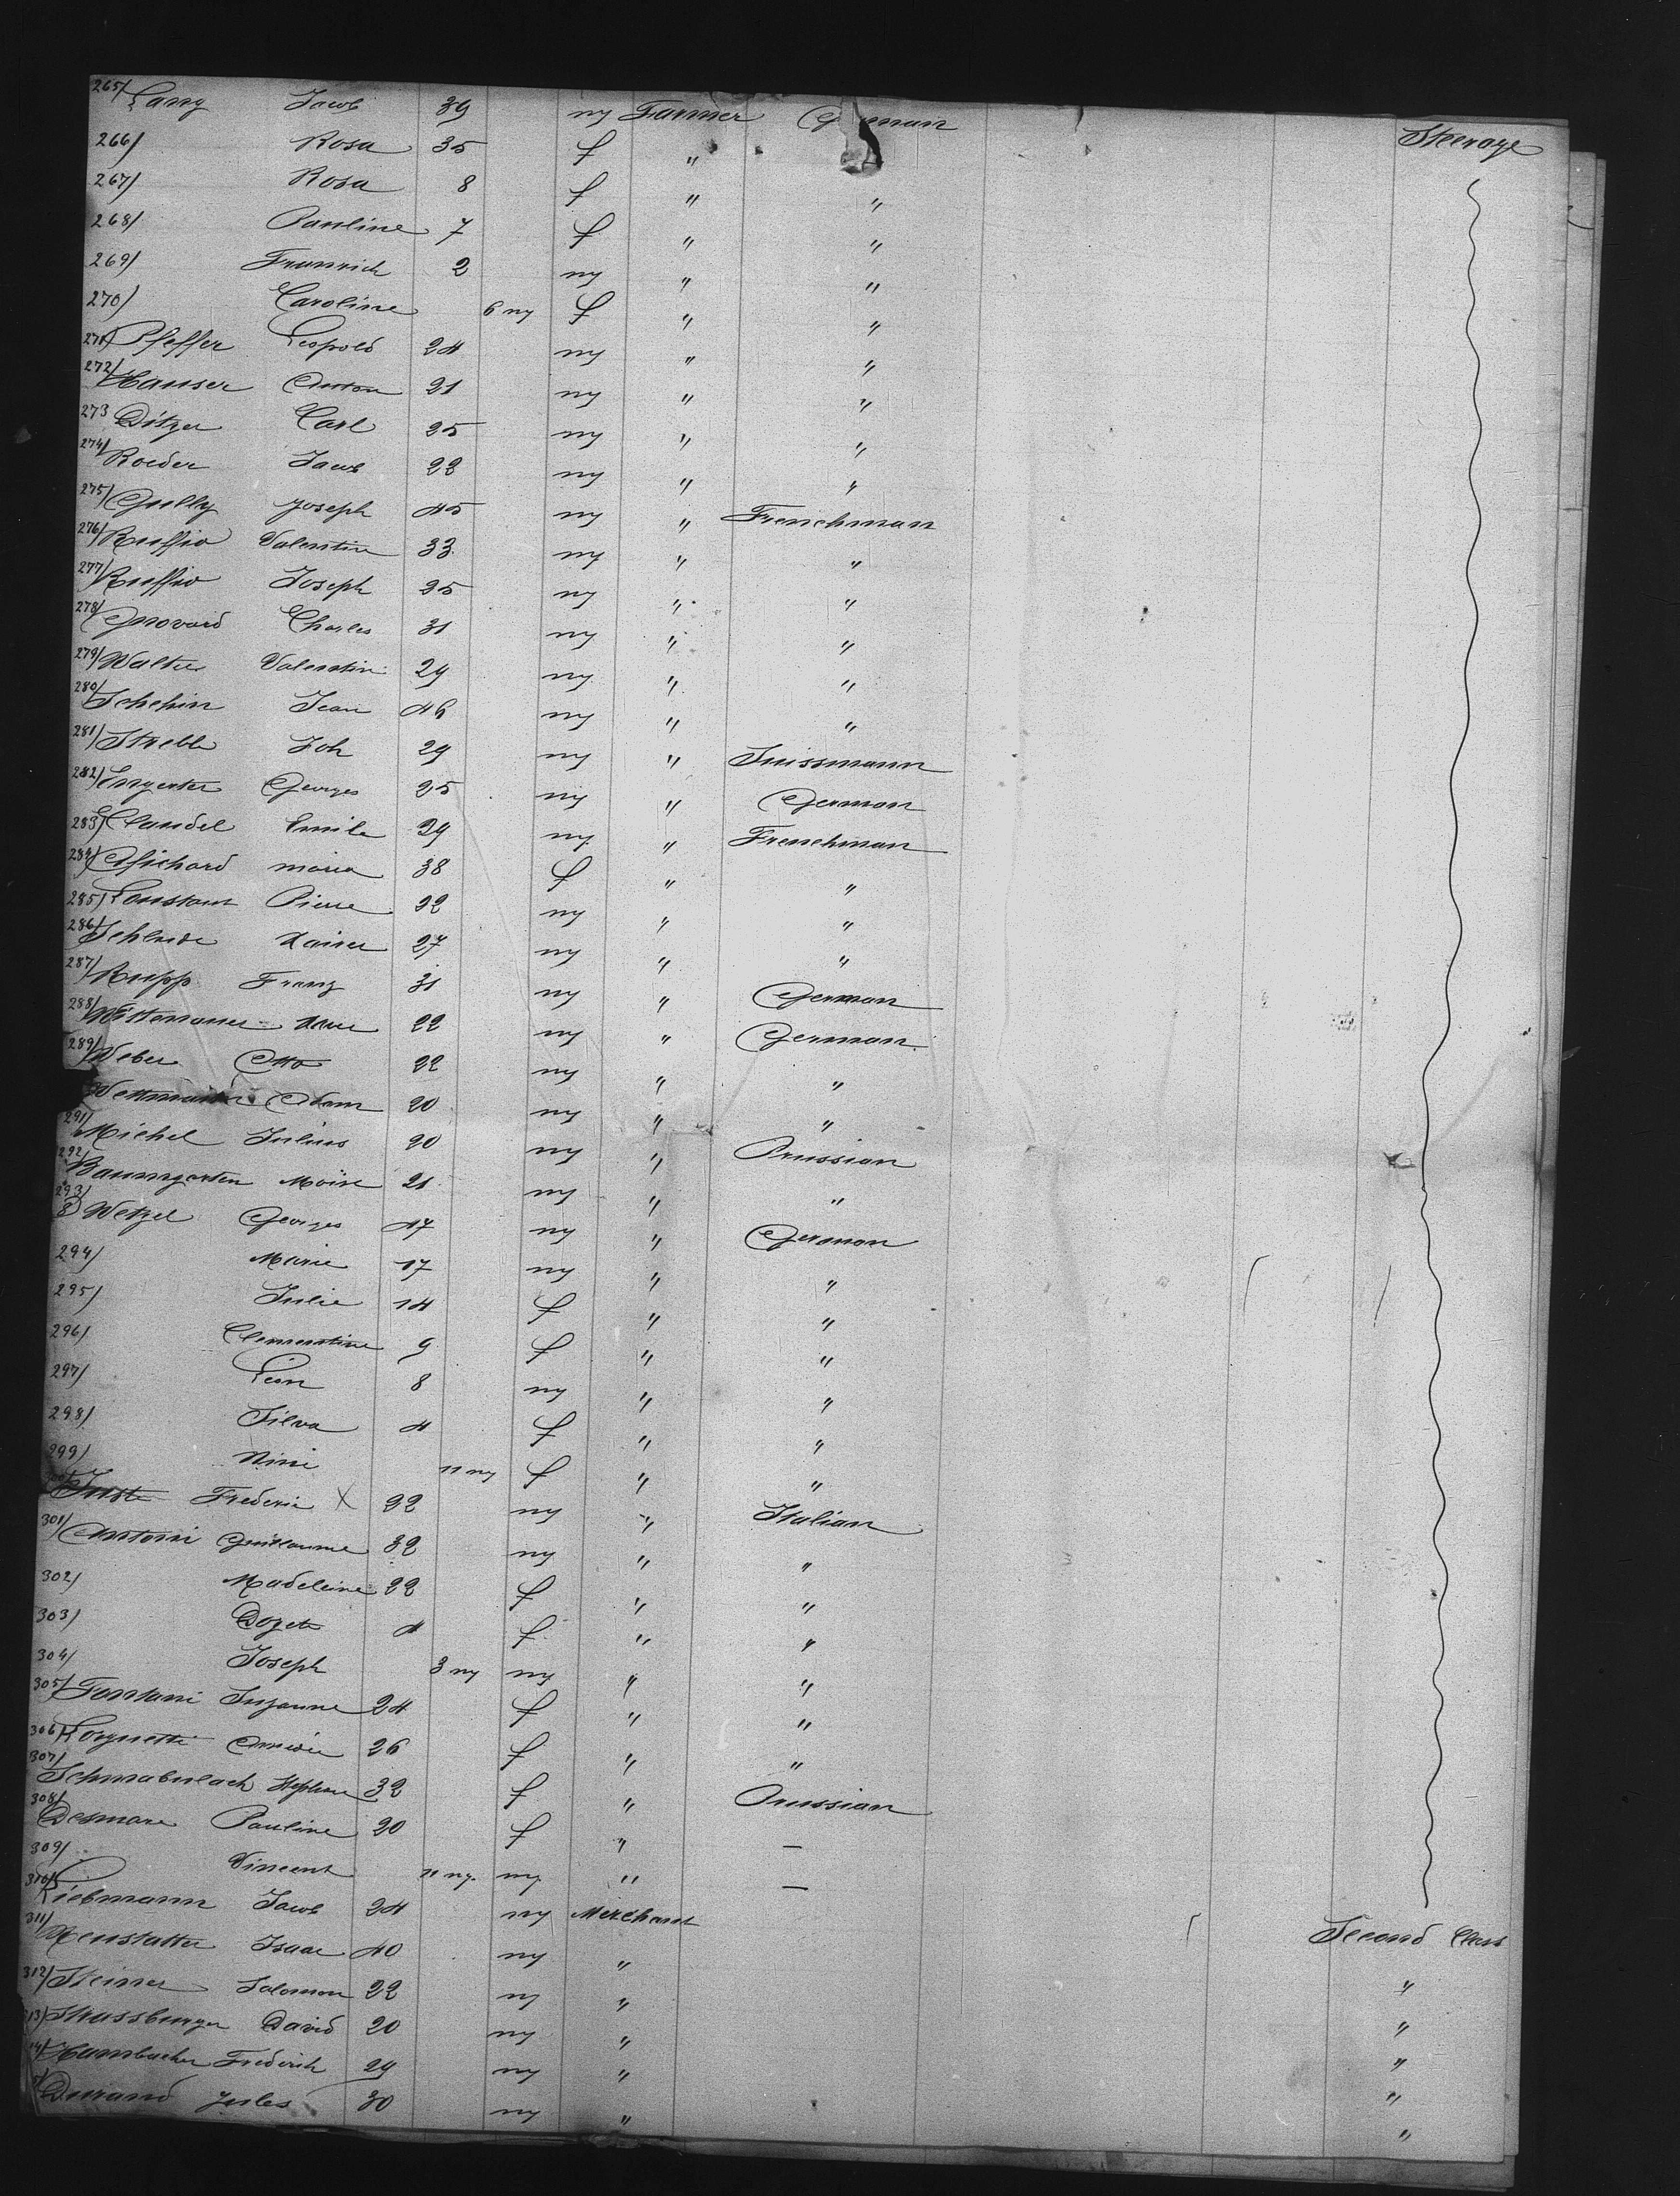 265/ Lang Jacob 39 m Farmer German Steerage
266/ Rosa 35 f " "
267/ Rosa 8 f " "
268/ Pauline 7 f " "
269/ 2 m " "
270/ Caroline 6 m f " "
271/ Pfeffer Leopold 24 m " "
272/ Hauser Anton 21 m " "
273 Ditzer Carl 25 m " "
274/ Roeder Jacob 22 m " "
275/ Gully Joseph 45 m " Frenchman
276/ Ruffio Valentin 33 m " "
277/ Ruffio Joseph 25 m " "
278/ Charles 31 m " "
279/ Walter Valentin 29 m " "
280/ Jean 46 m " "
281/ Joh 29 m " Suissmann
282/ Georges 25 m " German
283/ Claudel Emile 29 m " Frenchman
284/ maria 38 f " "
285/ Constant Pierre 22 m " "
286/ Xavier 27 m " "
287/ Rupp Franz 31 m " German
288/ 22 m " German
289/ Weber Otto 22 m " "
Adam 20 m " "
291/ Michel Julius 20 m " Prussian
292/ Baumgarten Moïse 21 m " "
293/ Wetzel Georges 47 m " German
294/ Marie 17 m " "
295/ Julie 14 f " "
296/ Clementine 9 f " "
297/ Léon 8 m " "
298/ Silva 4 f " "
299/ Nini 11 m f " "
Juste Frederic X 22 m " Italian
301/ Antoni Guillaume 32 m " "
302/ Madeleine 22 f " "
303/ 4 f " "
304/ Joseph 3 m m " "
305/ Fontani Suzanne 24 f " "
306/ 26 f " "
307/ 32 f " Prussian
308/ Desmare Pauline 20 f " —
309/ Vincent 11 m m " —
310/ Liebmann Jacob 24 m Merchant Second Class
311/ Neustatter Isaac 40 m " "
312/ Steiner Salomon 22 m " "
313/ Strassburger David 20 m " "
14/ Hambacher Frederick 29 m " "
Durand Jules 30 m " "